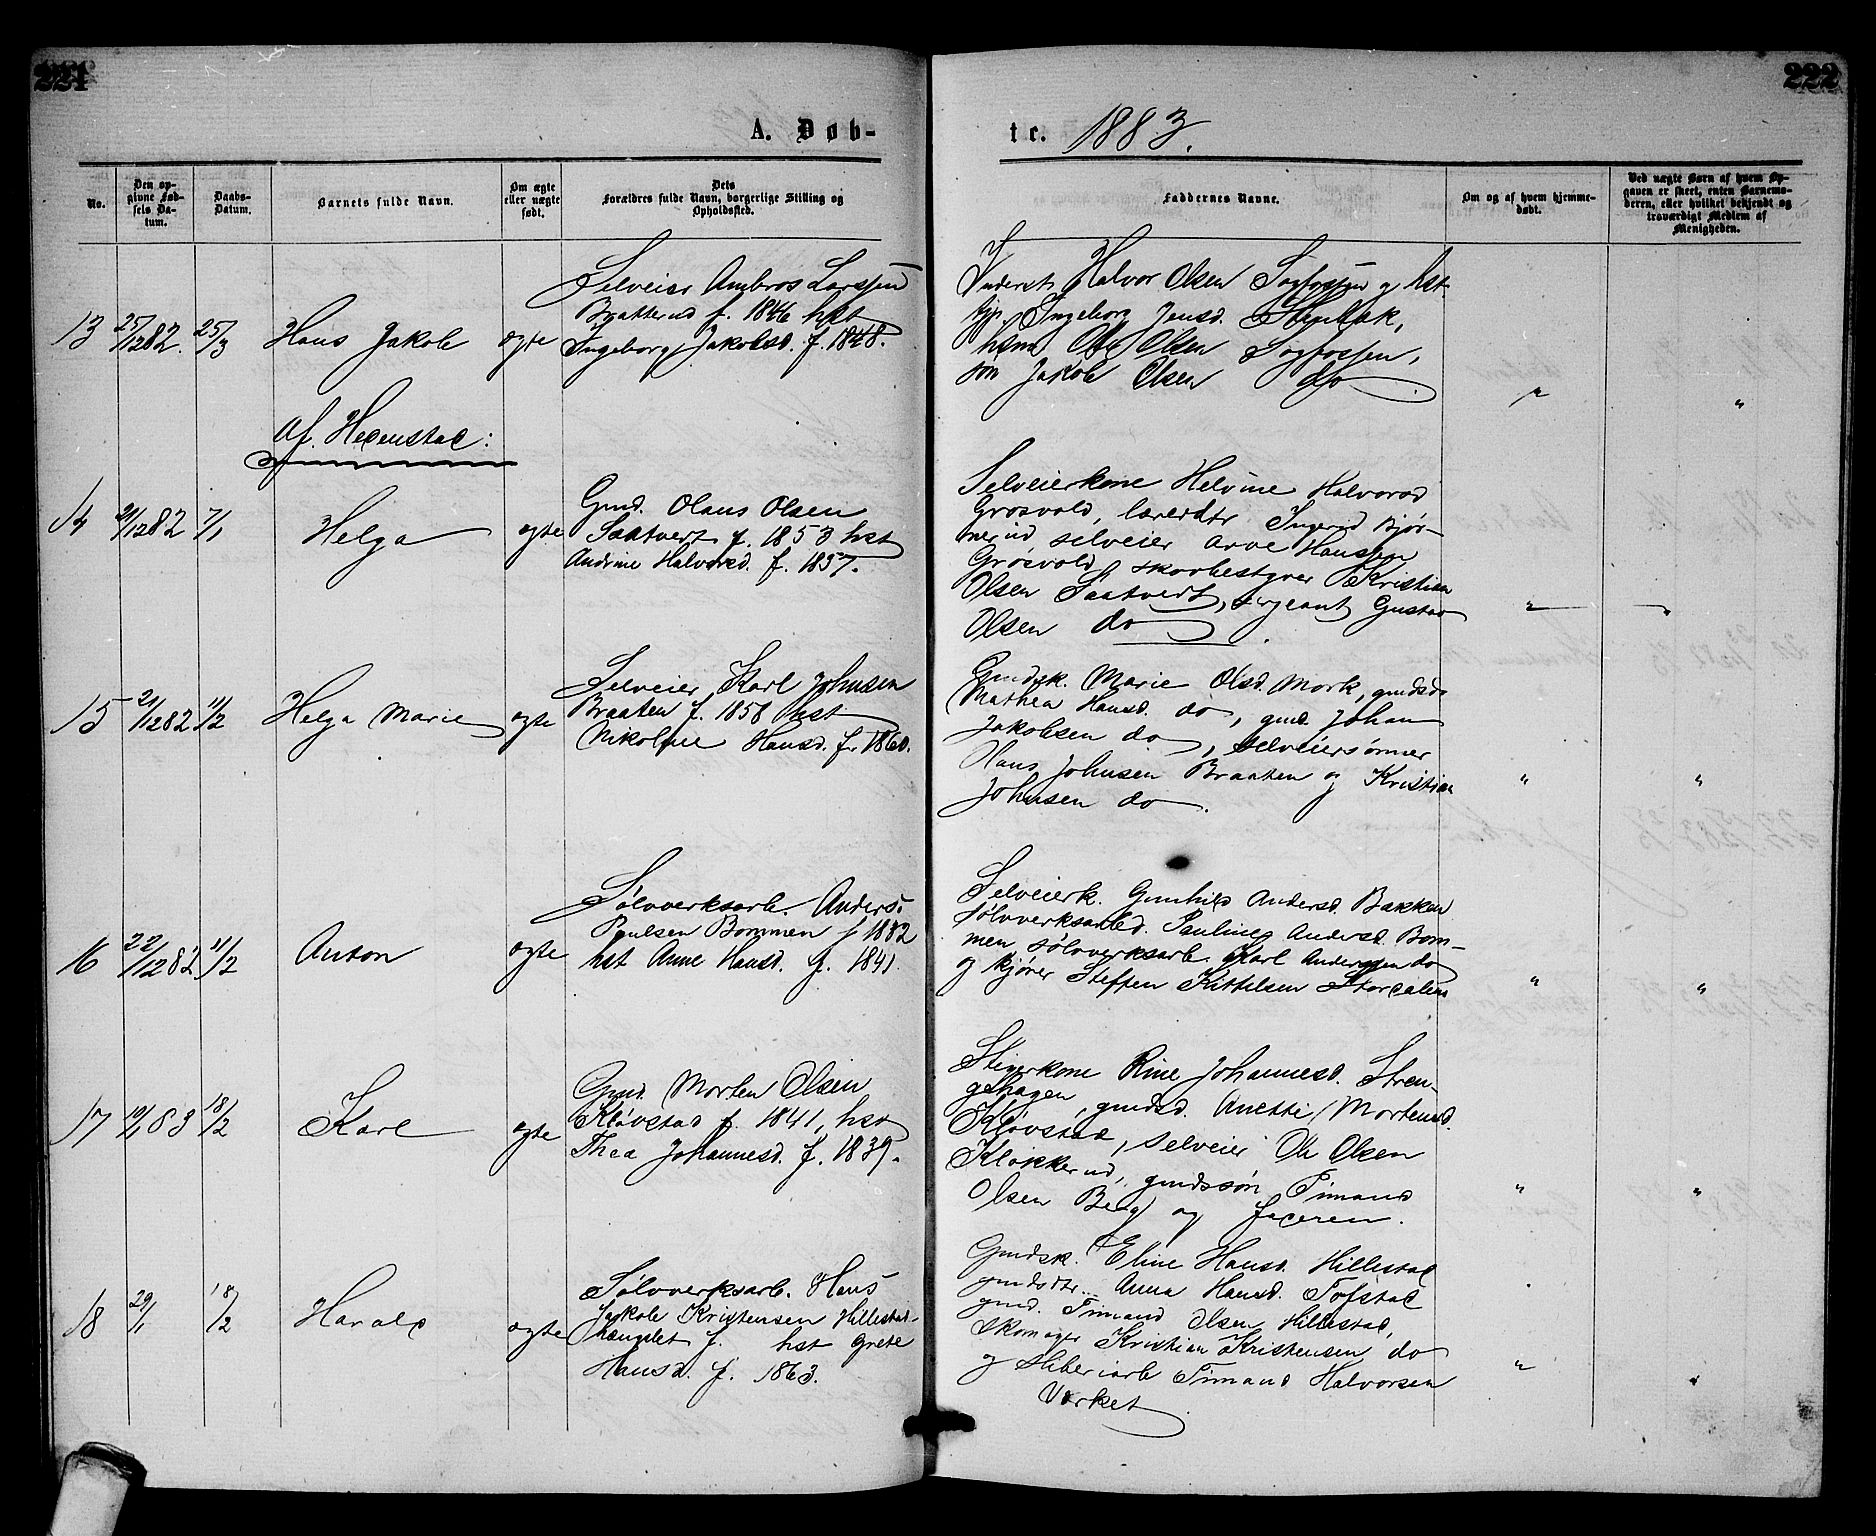 221
222
A. Døb-
te. 1883.
No.
Den op-
givne Fød-
sels Da-
tum.
Daabs-
Datum.
Barnets fulde Navn.
Om ægte
eller uægte
født.
Dets
Forældres fulde Navn, borgerlige Stilling og
Opholdssted.
Faddernes Navne.
Om og af hvem hjemme-
døbt.
Ved uægte Børn af hvem Op-
gaven er skeet, enten Barnemo-
deren, eller hvilket bekjendt og
troværdigt Medlem af
Menigheden.
13 25/12 82. 25/3 Hans Jakob ægte
Selveier Ambros Larssen
Braatterud f. 1846 hst
Ingeborg Jakobsd. f. 1848.
Inderst Halvor Olsen Sagfossen og hst
kjp. Ingeborg Jensd.
Ole Olsen Sagfossen,
søn Jakob Olsen do
" "
Af Hedenstad:
14 21/12 82 7/1 Helga ægte
Gmd. Olaus Olsen
Saatvert f. 1853 hst
Andrine Halvorsd. f. 1857.
Selveierkone Helvine Halvorsd
Grosvold, Ingerid Bjør-
nerud selveier Arve Hanssen
Grøsvold, skovbestyrer Kristian
Olsen Saatvedt, sergeant Gustav
Olsen do.
" "
15 21/12 82 11/2 Helga Marie ægte
Selveier Karl Johnsen
Braaten f. 1858 hst
Nikoline Hansd. f. 1860.
Gmdsk. Marie Olsd. Mork, gmdsd.
Mathea Hansd. do, gmd. Johan
Jakobsen do, selveiersønner
Hans Johnsen Braaten og Kristian
Johnsen do.
" "
16 22/12 82. 11/2 Anton ægte
Sølvverksarb. Anders
Poulsen Bommen f 1882
hst Anne Hansd. f. 1841.
Selveierk. Gunhild Andersd. Bakken
sølvverksarbd. Pauline Andersd. Bom-
men, sølvverksarb. Karl Anderssen do
og kjører Steffen Kittelsen Stordalen
" "
17 10/1 83 18/2 Karl ægte
Gmd. Morten Olsen
Kløvstad f. 1841, hst
Thea Johannesd. f. 1839.
Stigerkone Rine Johannesd. Stren-
gehagen, gmdsd. Anette Mortensd.
Kløvstad, selveier Ole Olsen
Klokkerud, gmdssøn Timand
Olsen Berg og faderen.
" "
18 29/1 18/2 Harald ægte
Sølvverksarb. Hans
Jakob Kristensen Hillestad-
hængslet f. hst Grete
Hansd. f. 1863.
Gmdsk. Eline Hansd. Hillestad
gmdsdtr. Anna Hansd. Tofstad
gmd. Timand Olsen Hillestad,
Skomager Kristian Kristensen do
og Timand Halvorsen
Værket
" "